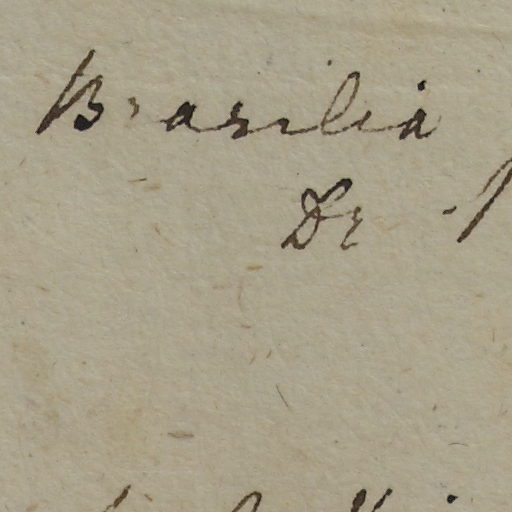 Brasilia
Dr